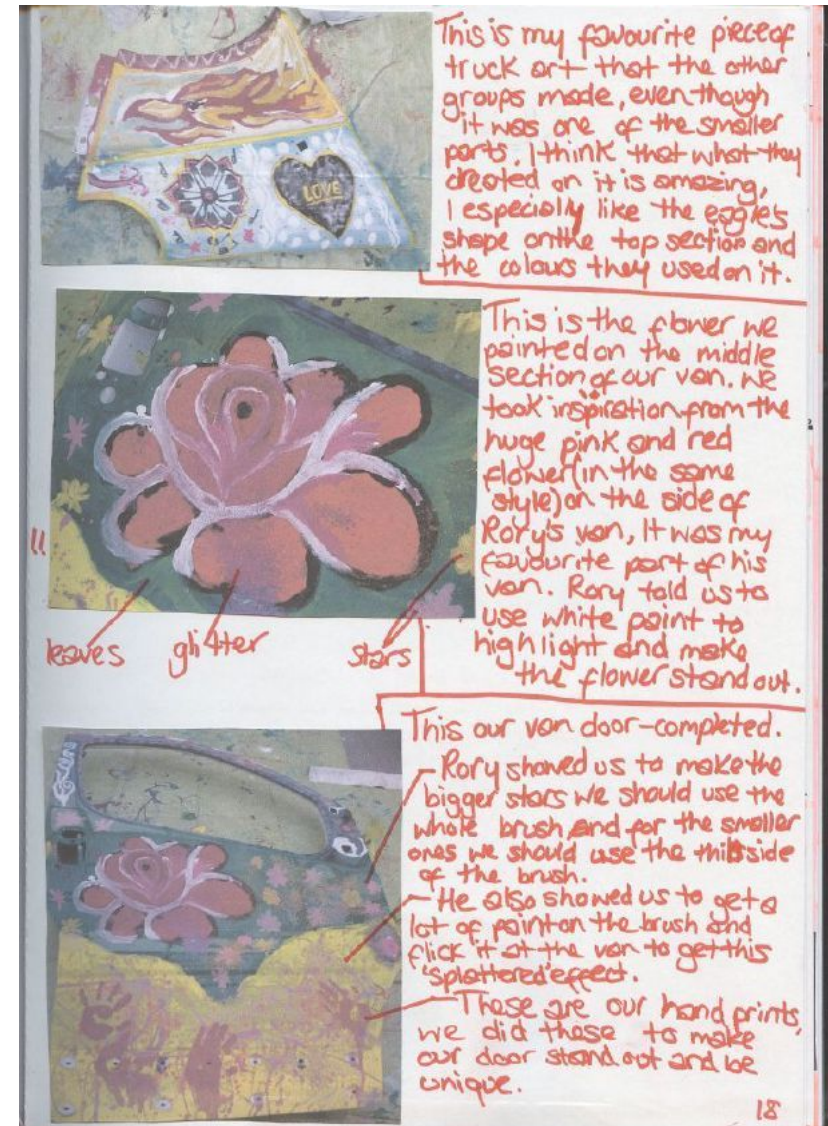 This is my favourite piece of
truck art that the other
groups made, even though
it was one of the smaller
parts. I think that what they
created on it is amazing,
I especially like the eagle's
shape on the top section and
the colours they used on it.
LOVE
This is the flower we
painted on the middle
section of our van. We
took inspiration from the
huge pink and red
flower (in the same
style) on the side of
Rory's van, It was my
favourite part of his
van. Rory told us to
use white paint to
highlight and make
the flower stand out.
leaves glitter stars
This our van door-completed.
Rory showed us to make the
bigger stars we should use the
whole brush and for the smaller
ones we should use the side
of the brush.
He also showed us to get a
lot of paint on the brush and
flick it at the van to get this
'splattered' effect.
These are our hand prints,
we did these to make
our door stand out and be
unique.
18